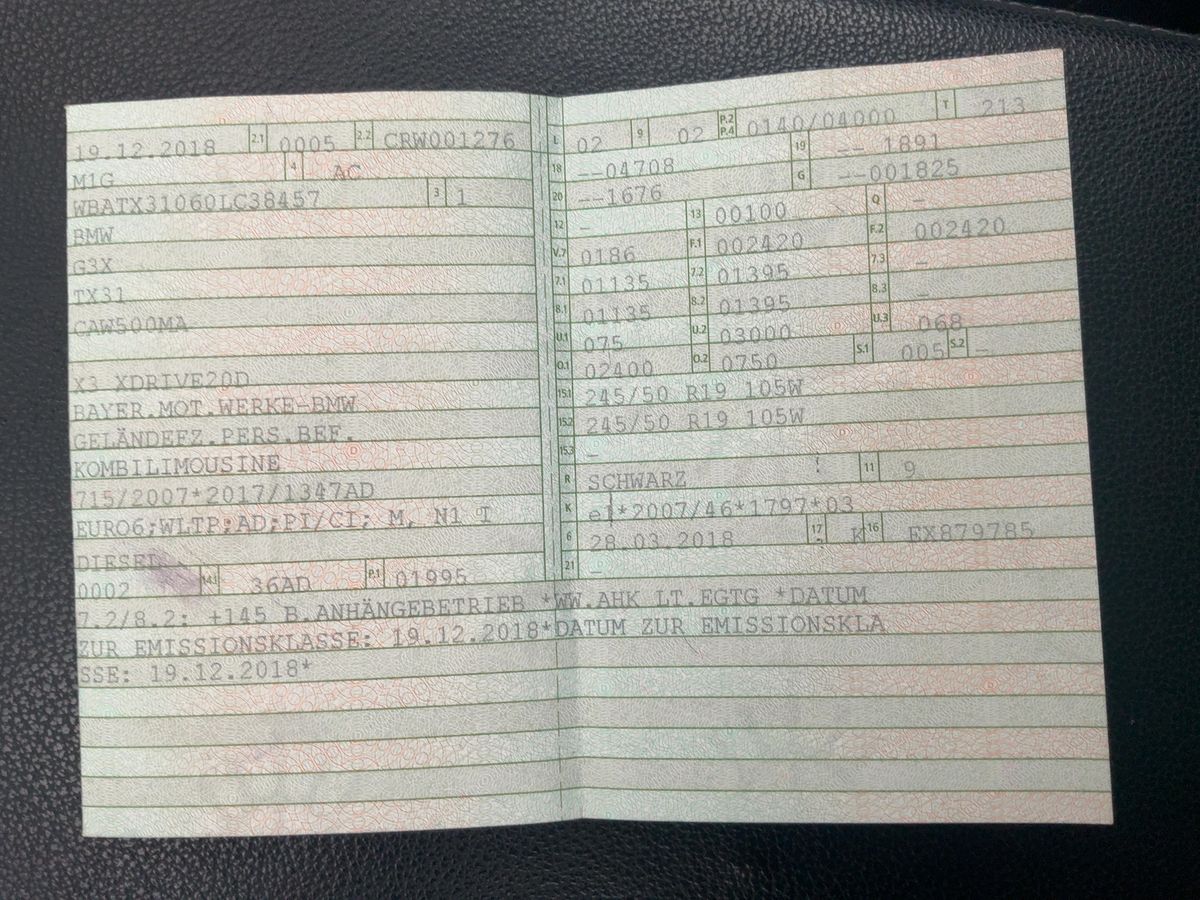 19.12.2018 2.1 0005 2.2 CRW001276 L 02 9 02 P.2 P.4 0140/04000 T 213
M1G 4 AC 18 --04708 19 -- 1891
WBATX31060LC38457 3 1 20 --1676 G --001825
BMW 12 - 13 00100 Q -
G3X V.7 0186 F.1 002420 F.2 002420
TX31 7.1 01135 7.2 01395 7.3 -
CAW500MA 8.1 01135 8.2 01395 8.3 -
U.1 075 U.2 03000 U.3 068
X3 XDRIVE20D O.1 02400 O.2 0750 S.1 005 S.2 -
BAYER.MOT.WERKE-BMW 15.1 245/50 R19 105W
GELÄNDEFZ.PERS.BEF. 15.2 245/50 R19 105W
KOMBILIMOUSINE 15.3 -
715/2007*2017/1347AD R SCHWARZ 11 9
EURO6;WLTP;AD;PI/CI; M, N1 I K e1*2007/46*1797*03
DIESEL 6 28.03.2018 17 K 16 EX879785
0002 14.1 36AD P.1 01995 21 -
7.2/8.2: +145 B.ANHÄNGEBETRIEB *WW.AHK LT.EGTG *DATUM
ZUR EMISSIONSKLASSE: 19.12.2018*DATUM ZUR EMISSIONSKLA
SSE: 19.12.2018*